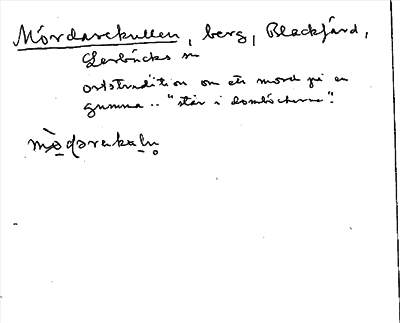 Mördarekullen, berg, Blackfjärd,
Lerbäcks sn
ortstradition om ett mord på en
gumma .. "står i domböckerna".